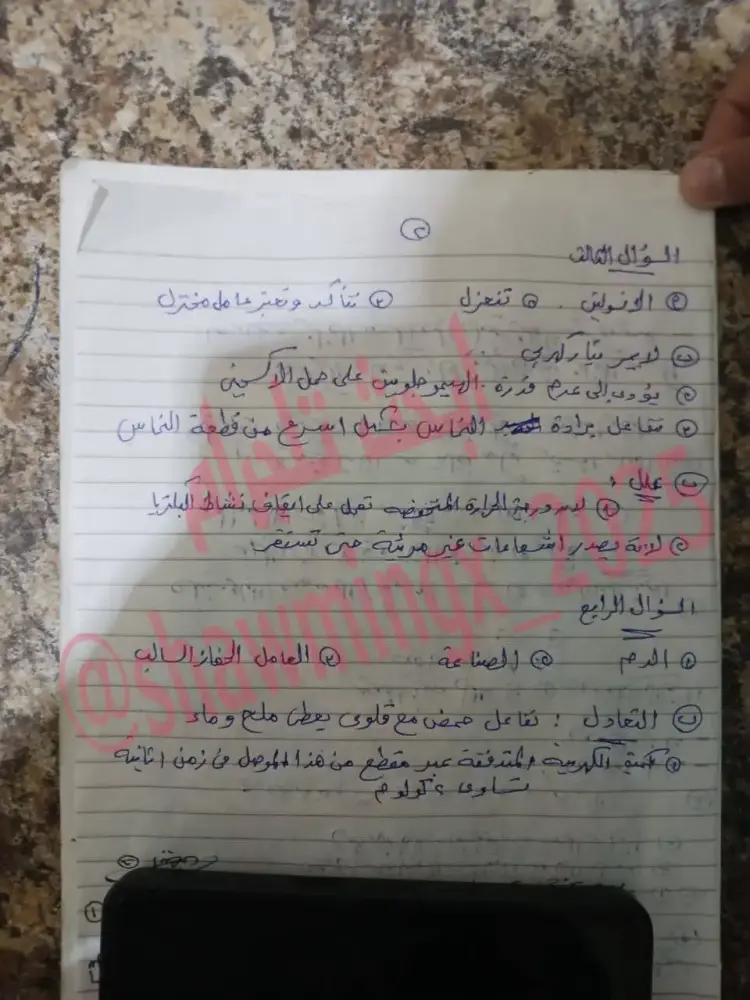 ٢
السؤال الثالث
١ الانولين . ٢ تنعزل ٣ تتأكد وتعتبر عامل مختزل
ب لا يمر تيار كهربي
٢ يؤدى إلى عدم قدرة الهيموجلوبين على حمل الأكسجين
٣ تتفاعل برادة النحاس بشكل اسرع من قطعة النحاس
ب علل :
١ لان درجة الحرارة المنخفضه تعمل على ايقاف نشاط البكتريا
٢ لانة يصدر اشعاعات غير مرئية حتى تستقر
السؤال الرابع
١ الدم ٢ الصناعة ٣ العامل الحفاز السالب
ب التعادل : تفاعل حمض مع قلوى يعطى ملح وماء
١ كمية الكهربية المتدفقة عبر مقطع من هذا الموصل فى زمن ١ ثانية
تساوى ٢ كولوم
ابحث تليجرام
@shawmingx_2025